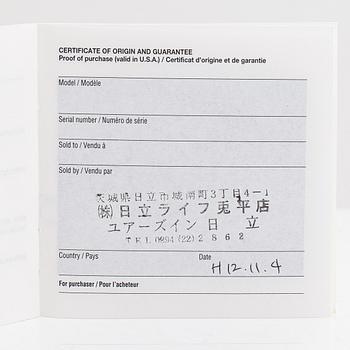 CERTIFICATE OF ORIGIN AND GUARANTEE
Proof of purchase (valid in U.S.A.) / Certificat d'origine et de garantie
Model / Modèle
Serial number / Numéro de série
Sold to / Vendu à
Sold by / Vendu par
茨城県日立市城南町3丁目4-1
㈱日立ライフ兎平店
ユアーズイン日 立
TEL 0294 (22) 2862
Country / Pays
Date
H12.11.4
For purchaser / Pour l'acheteur